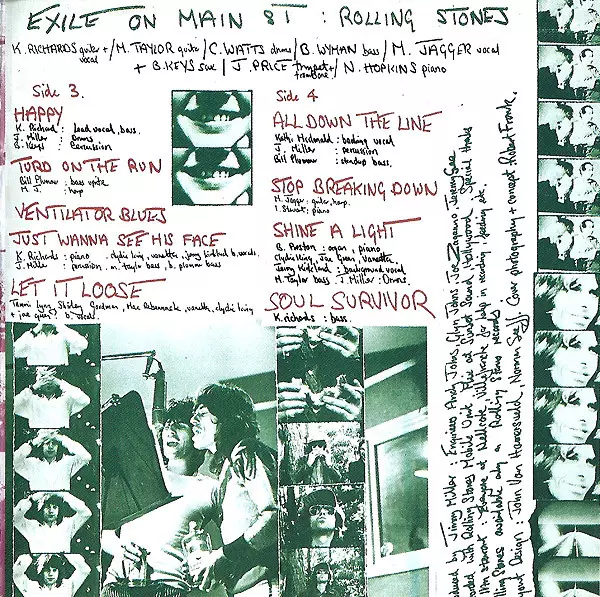 EXILE ON MAIN ST : ROLLING STONES
K. RICHARDS guitar + / M. TAYLOR guitar / C. WATTS drums / B. WYMAN bass / M. JAGGER vocal
vocal
+ B. KEYS sax / J. PRICE trumpet + / N. HOPKINS piano
trombone
Side 3.
HAPPY
K. Richard : lead vocal, bass.
J. Miller : Drums
B. Keys : percussion
TURD ON THE RUN
Bill Plummer : bass uprite
M. J. : harp
VENTILATOR BLUES
JUST WANNA SEE HIS FACE
K. Richards : piano . clydie king, vanetta, jerry kirkland b. vocals.
J. Miller : percussion, m. taylor bass b. plummer bass
LET IT LOOSE
Tammi Lynn, Shirley Goodman, Mac Rebennack, vanetta, clydie king
+ joe green : b. vocals.
Side 4
ALL DOWN THE LINE
Kathi Mcdonald : backing vocal
J. Miller : percussion
Bill Plummer : standup bass.
STOP BREAKING DOWN
M. Jagger : guitar, harp.
I. Stewart : piano
SHINE A LIGHT
B. Preston : organ, piano
Clydie King, Joe Green, Vanetta,
Jerry Kirkland : background vocal
M. Taylor bass J. Miller : Drums.
SOUL SURVIVOR
K. richards : bass.
Jimmy Miller : Engineers Andy Johns, Glyn Johns, Joe Zagarino, Jeremy Gee
Rolling Stones Mobile Unit, this at Sunset Sound, Hollywood. Special thanks
stewart : everyone at Nellcote, Villefranche for help in recording, feeding etc,
available only on Rolling Stones records
Design : John Van Hamersveld, Norman Seeff / Cover photography + concept Robert Frank.